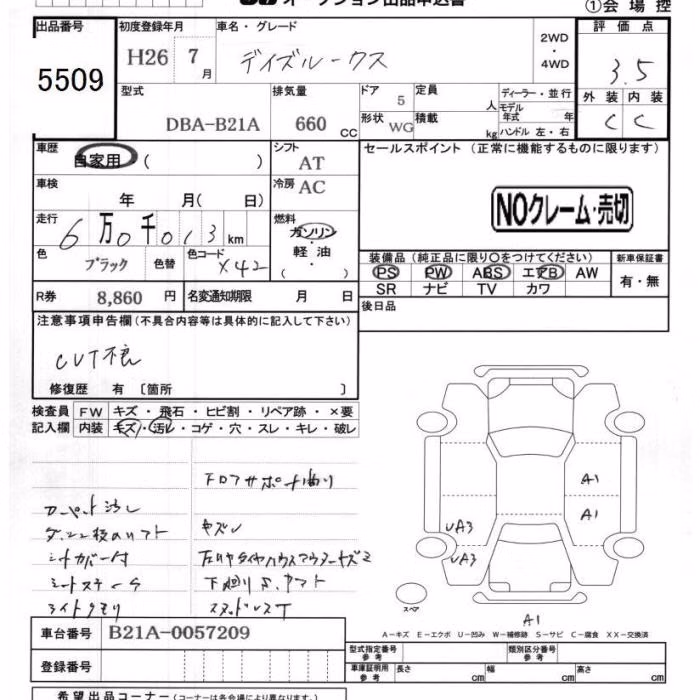 オークション出品申込書
①会場控
出品番号
5509
初度登録年月
H26 7月
車名・グレード
デイズルークス
2WD
・
4WD
評価点
3.5
外装 内装
C C
型式
DBA-B21A
排気量
660 CC
ドア 5
形状 WG
定員 人
積載 kg
ディーラー・並行
モデル年式 年
ハンドル 左・右
車歴
自家用 ( )
シフト AT
セールスポイント (正常に機能するものに限ります)
車検
年 月( 日)
冷房 AC
NOクレーム・売切
走行
6万0千013km
燃料
ガソリン
・
軽油
・( )
色
ブラック
色替
色コード
X42
装備品(純正品に限り〇をつけてください)
新車保証書
PS PW ABS エアB AW
SR ナビ TV カワ
有・無
R券 8,860 円
名変通知期限 月 日
後日品
注意事項申告欄(不具合内容等は具体的に記入して下さい)
CVT不良
修復歴 有 〔箇所 〕
検査員記入欄
FW キズ・飛石・ヒビ割・リペア跡・×要
内装 キズ・汚レ・コゲ・穴・スレ・キレ・破レ
フロアサポート曲り
カーペット汚レ
ダッシュ板のリフト
ヤズレ
シートカバー付
シートスチーム
下廻りS.ヤマト
ライトクモリ
スタッドレスT
A1
A1
UA3
UA3
スペア
A1
A－キズ E－エクボ U－凹み W－補修跡 S－サビ C－腐食 XX－交換済
車台番号 B21A-0057209
登録番号
型式指定番号 参考
類別区分番号 参考
車庫証明用 参考
長さ cm
幅 cm
高さ cm
希望出品コーナー (コーナーは各会場により異なります。)